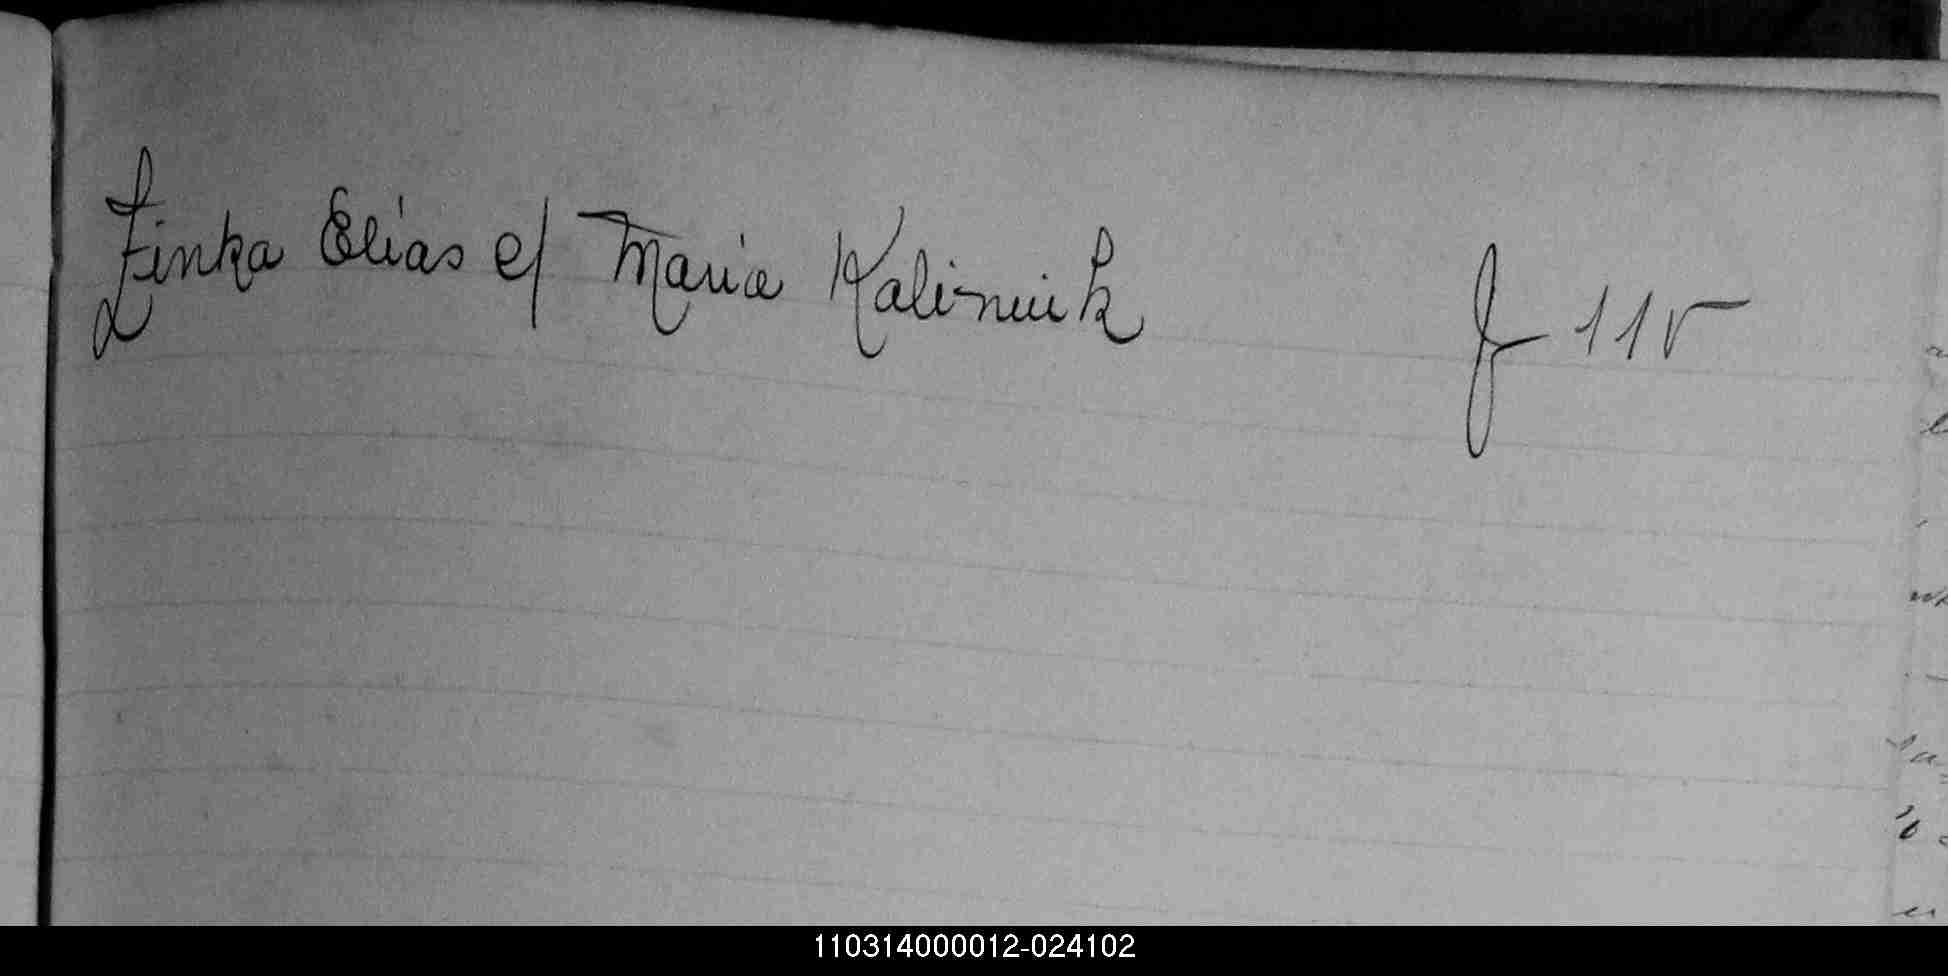 Zinka Elias c/ Maria Kaliniuk f 115
110314000012-024102